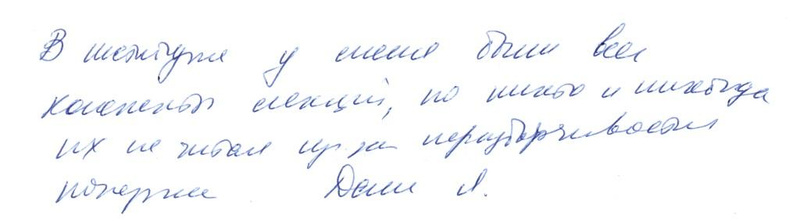 В институте у меня были все
конспекты лекций, но никто и никогда
их не читал из за неразборчивости
почерка Даши А.